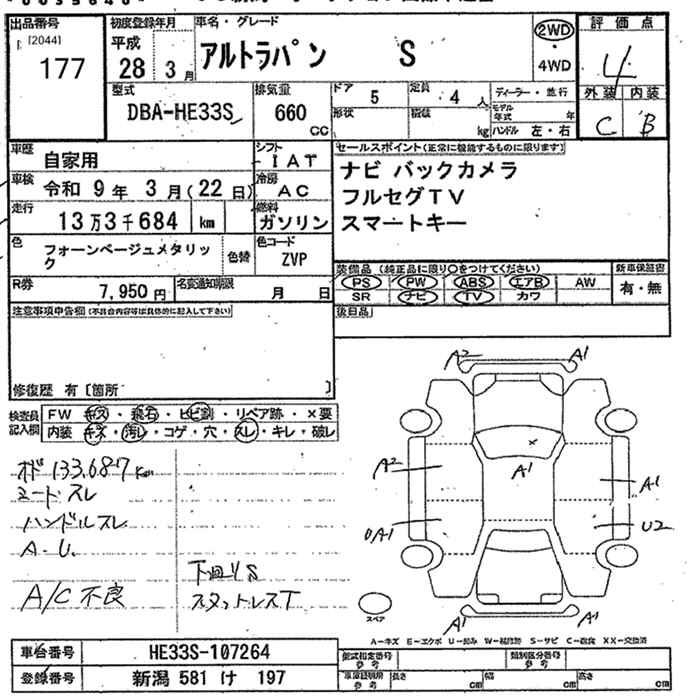 出品番号 [2044] 177
初度登録年月 平成 28 3 月
車名・グレード アルトラパン S
2WD ・ 4WD
評価点 4
外装 内装
C B
型式 DBA-HE33S
排気量 660 CC
ドア 5 定員 4 人
形状 積載 kg
ディーラー・並行
モデル年式 年
ハンドル 左・右
車歴 自家用
シフト IAT
車検 令和 9 年 3 月 ( 22 日)
冷房 AC
走行 13 万 3 千 684 km
燃料 ガソリン
色 フォーンベージュメタリック 色替
色コード ZVP
R券 7,950 円
名変通知期限 月 日
セールスポイント(正常に機能するものに限ります)
ナビ バックカメラ
フルセグTV
スマートキー
装備品(純正品に限り○をつけてください)
PS PW ABS エアB AW
SR ナビ TV カワ
新車保証書 有・無
後日品
注意事項申告欄(不具合内容等は具体的に記入して下さい)
修復歴 有〔箇所 〕
検査員記入欄
FW キズ・飛石・ヒビ割・リペア跡・×要
内装 キズ・汚レ・コゲ・穴・スレ・キレ・破レ
オド 133,687 Km
シートスレ
ハンドルスレ
A-U.
A/C 不良
下回りS
スタットレスT
A2 A1
A1
A2 A1
UA1 U2
A1 A1
スペア
A-キズ E-エクボ U-凹み W-補修跡 S-サビ C-腐食 XX-交換済
車台番号 HE33S-107264
登録番号 新潟 581 け 197
型式指定番号 参考
類別区分番号 参考
車庫証明用 参考 長さ cm 幅 cm 高さ cm